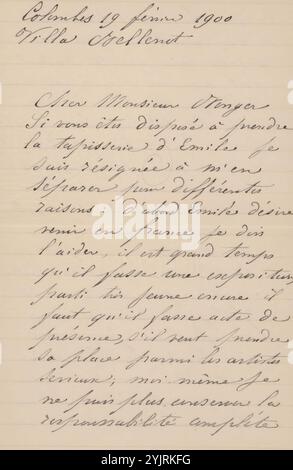 Colombes 19 février 1900
Villa Bellenot
Cher Monsieur Wenger
Si vous êtes disposé à prendre
la tapisserie d'Emile je
suis résignée à m'en
séparer pour différentes
raisons d'abord Emile désire
venir en France je dois
l'aider, il est grand temps
qu'il fasse une exposition,
parti très jeune encore il
faut qu'il fasse acte de
présence, s'il veut prendre
sa place parmi les artistes
serieux; moi même je
ne puis plus conserver la
responsabilité complète
alamy
Image ID: 2YJRKFG
www.alamy.com